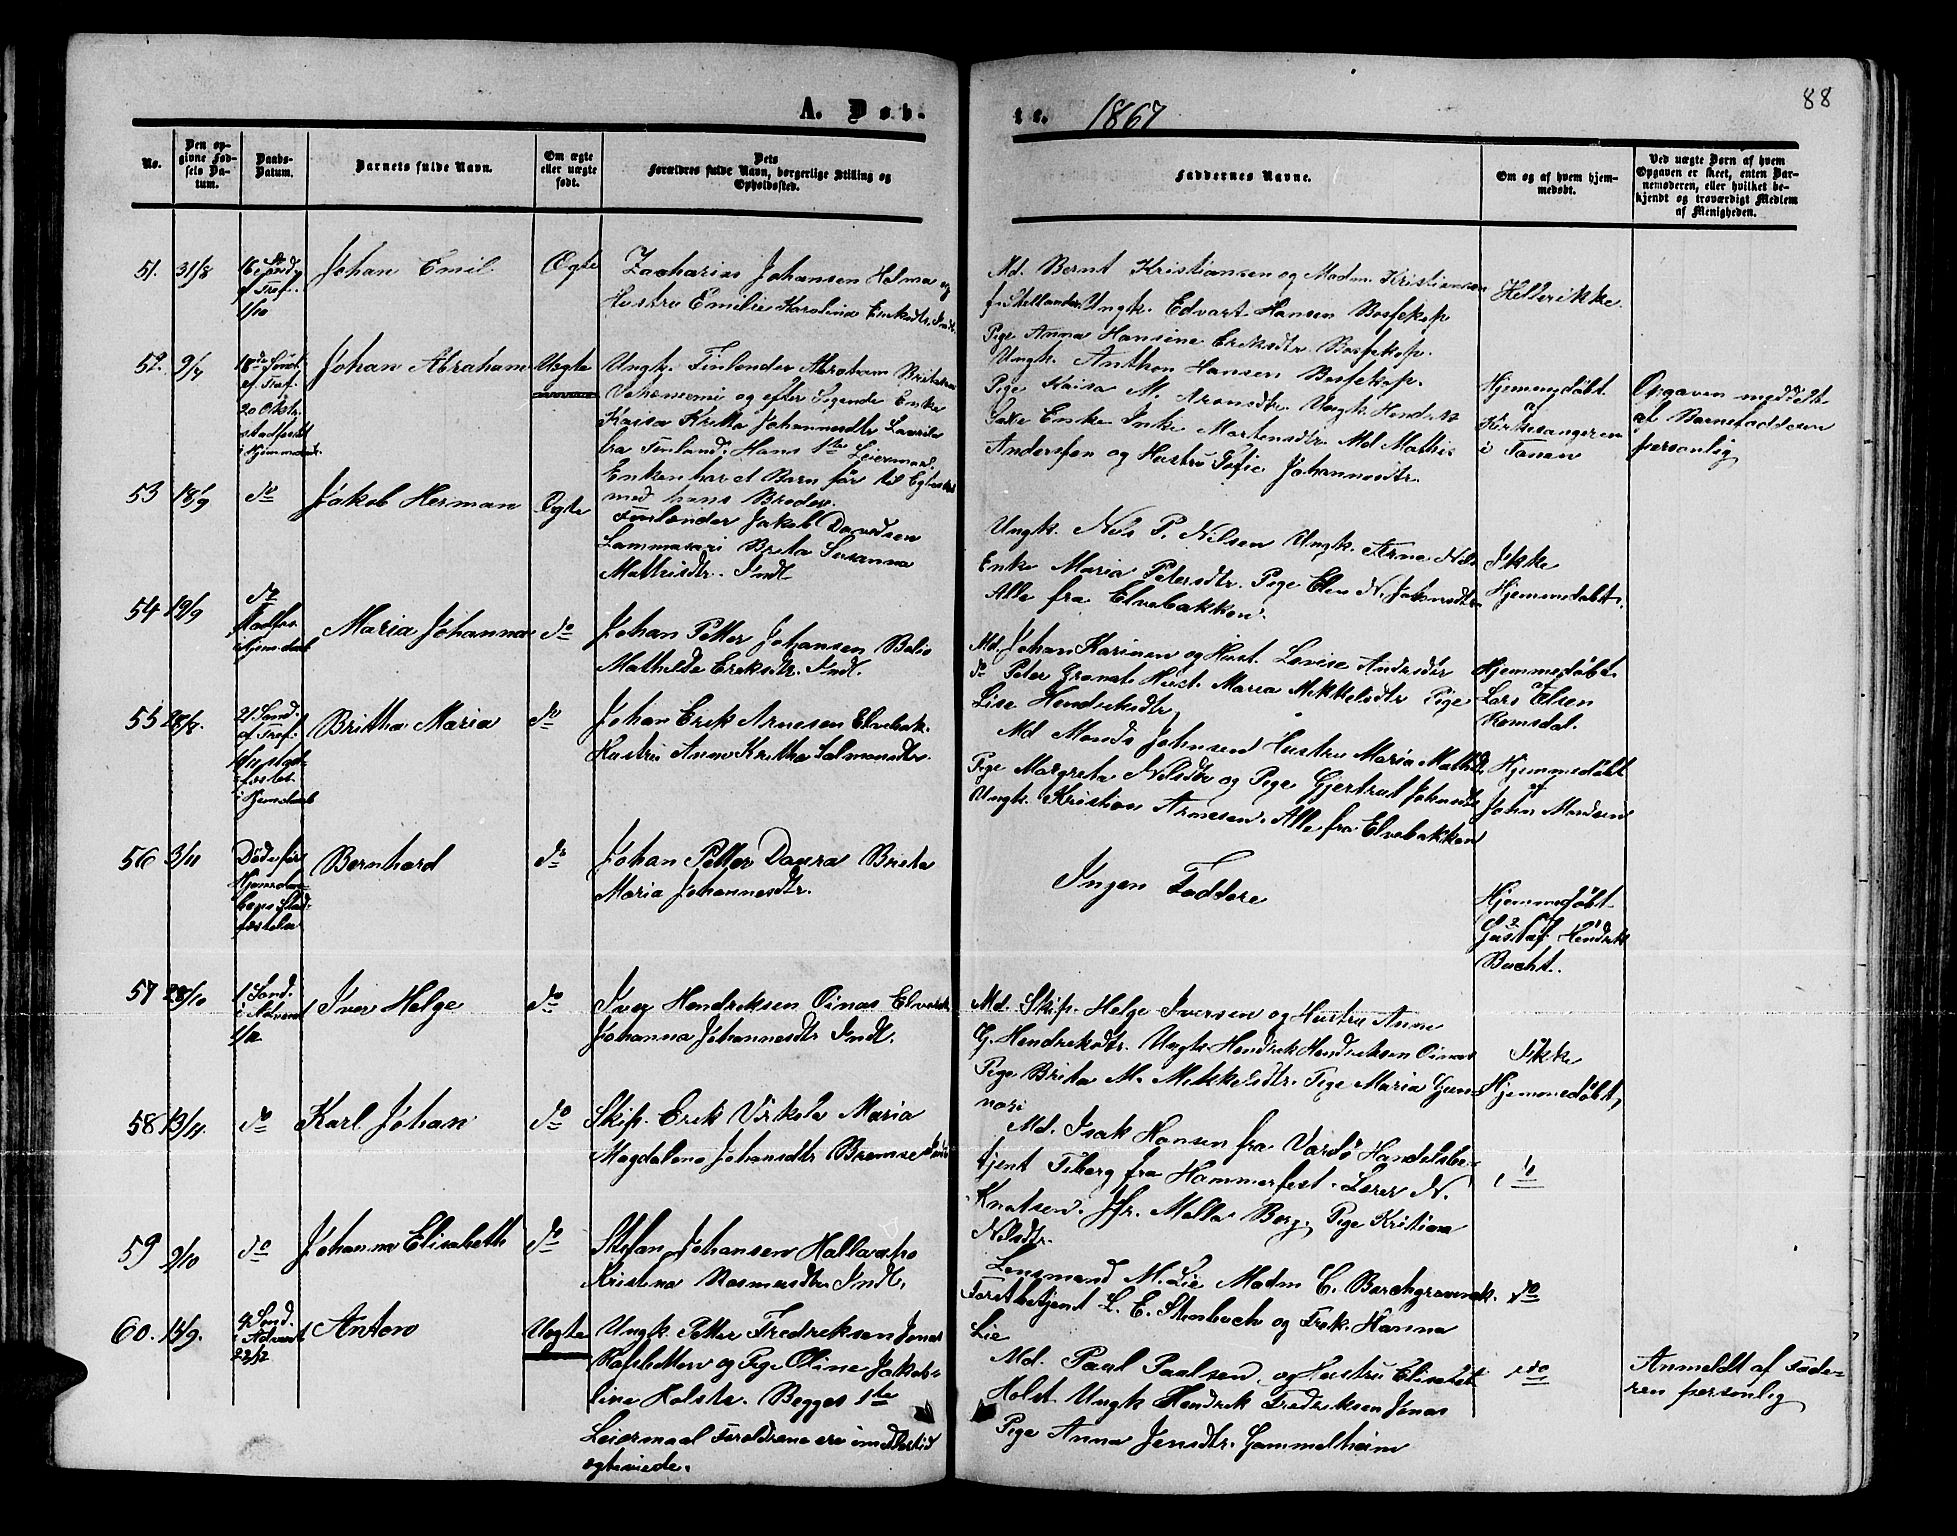 88
A. Døb-
te. 1867
No.
Den op-
givne Fød-
sels Da-
tum.
Daabs-
Datum.
Barnets fulde Navn.
Om ægte
eller uægte
født.
Dets
Forældres fulde Navn, borgerlige Stilling og
Opholdssted.
Faddernes Navne.
Om og af hvem hjem-
medøbt.
Ved uægte Børn af hvem
Opgaven er skeet, enten Bar-
nemoderen, eller hvilket be-
kjendt og troværdigt Medlem
af Menigheden.
51. 31/8
ef Tref.
1/10
Johan Emil
Ægte
Zacharias Johansen Holma og
Hustru Emilie Karolina
Md. Bernt Kristiansen og Madm. Kristiansen
Ungk. Edvart Hansen Bossekop
Pige Anna Hansine Eriksdtr. Bossekop.
52. 2/7
ef Tref.
20 Oktr.
stadfæstet
Johan Abraham
Uægte
Ungk. Finlender Abraham
og efter Sigende Enke
Kaisa Kritha Johannesdtr
fra Finland. Hans 1ste Leiermaal.
Enken har et Barn før
med hans Broder.
Ungk. Anthon Hansen Bossekop.
Pige Kaisa M. Aronsdtr. Ungk. Hendrik
Enke Inke Mortensdtr. Md. Mathis
Andersen og Hustru Sofie Johannesdtr.
Hjemmedøbt
af
Kirkesangeren
i Tanen
Opgaven meddelt
af Barnefaderen
personlig
53 18/9
do
Jakob Herman
Ægte
Finlender Jakob Davidsen
Lammasari Brita Susanna
Mathisdtr. Indl.
Ungk. Nils P. Nilsen Ungk. Arne Nils
Enke Maria Petersdtr. Pige Elen N. Johnsdtr
Alle fra Elvebakken.
Ikke
Hjemmedøbt.
54 19/9
do
Maria Johanna
do
Johan Petter Johansen
Mathilde Eriksdtr. Indl.
Md. Johan Karinen og Hust. Lovise Andersdtr
do Peter Granst Hust. Maria Mikkelsdtr Pige
Lise Hendriksdtr
Hjemmedøbt
Lars Olsen
Romsdal.
55 28/8.
21 Sønd.
ef Tref.
Britha Maria
do
Johan Erik Arnesen Elvebak.
Hustru Anna Kritha Salmonsdtr.
Md Monds Johnsen Hustru Maria Mathisd.
Pige Margreta Nilsdtr og Pige Gjertrud Johnsdtr
Ungk. Kristian Arnesen. Alle fra Elvebakken
Hjemmedøbt
af
Johan Mondsen
56 3/11
Døde før
Hjemmedaa-
bens Stad-
fæstelse
Bernhard
do
Johan Petter Daura Brita
Maria Johannesdtr.
Ingen Faddere
Hjemmedøbt
af
Gustaf Hendrik
Bucht.
57 28/10
1 Sønd.
i Advent
1/12
Iver Helge
do
Iver Hendriksen Oinas Elvebak
Johanna Johannesdtr Indl.
Md. Skip. Helge Iversen og Hustru Anne
G. Hendriksdtr. Ungk Hendrik Hendriksen Oinas
Pige Brita M. Mikkelsdtr. Pige Maria Gun-
nari
Ikke
Hjemmedøbt,
58 13/11.
do
Karl Johan
do
Skip. Erik Virkola Maria
Magdalena Johansdtr Bremse
Md. Isak Hansen fra Vardø Handelsbe-
tjent Feberg fra Hammerfest. Lærer N.
Knutsen. Jfr. Malla Berg. Pige Kristina
Nilsdtr.
59 2/10
do
Johanna Elisabeth
do
Stefan Johansen
Kristina Rasmusdtr Indl.
Lensmand M. Lie Madm C. Borchgrevink.
Forstbetjent L. E. Stenbuch og Frøk. Hanna
Lie
do
60. 14/9.
4 Sønd.
i Advent
22/12
Anton
Uægte
Ungk. Petter Fredriksen Jonas
Rafsbotten og Pige Oline Jakob-
line Holste. Begges 1ste
Leiermaal Forældrene ere imidlertid
egteviede.
Md. Paul Paulsen og Hustru Elisabet
Holst Ungk Hendrik Fredriksen Jonas
Pige Anna Jensdtr. Gammelheim
do
Anmeldt af Fade-
ren personlig